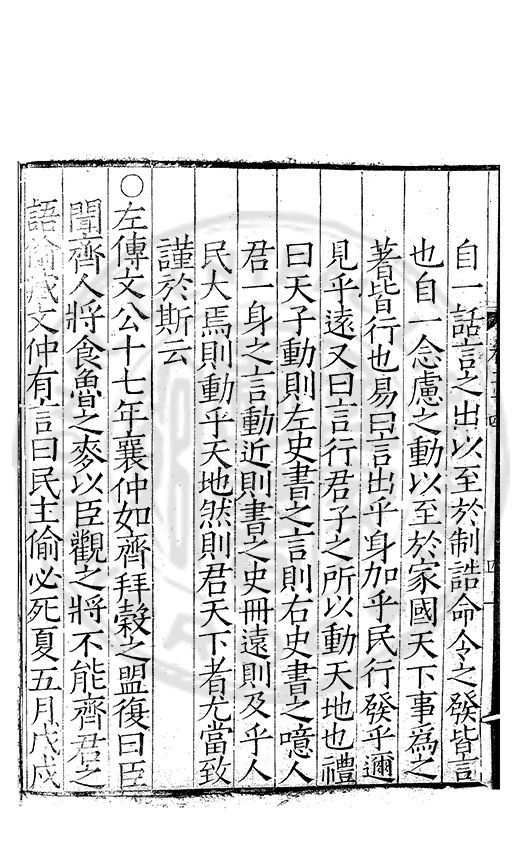 自一話言之出以至於制誥命令之發皆言
也自一念慮之動以至於家國天下事為之
著皆行也易曰言出乎身加乎民行發乎邇
見乎遠又曰言行君子之所以動天地也禮
曰天子動則左史書之言則右史書之噫人
君一身之言動近則書之史冊遠則及乎人
民大焉則動乎天地然則君天下者尤當致
謹於斯云
〇左傳文公十七年襄仲如齊拜穀之盟復曰臣
聞齊人將食魯之麥以臣觀之將不能齊君之
語偷臧文仲有言曰民主偷必死夏五月戊戌